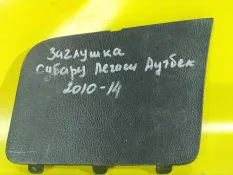 Заглушка
субару Легаси Аутбек
2010-14